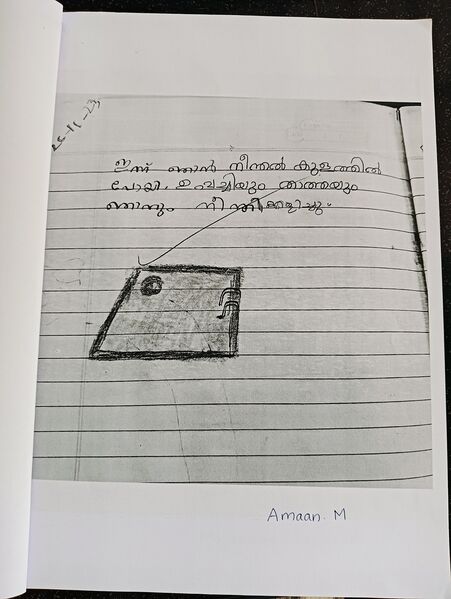 25-11-23
ഇന്ന് ഞാൻ നീന്തൽ കുളത്തിൽ
പോയി. ഉപ്പച്ചിയും താത്തയും
ഞാനും നീന്തിക്കളിച്ചു.
Amaan. M